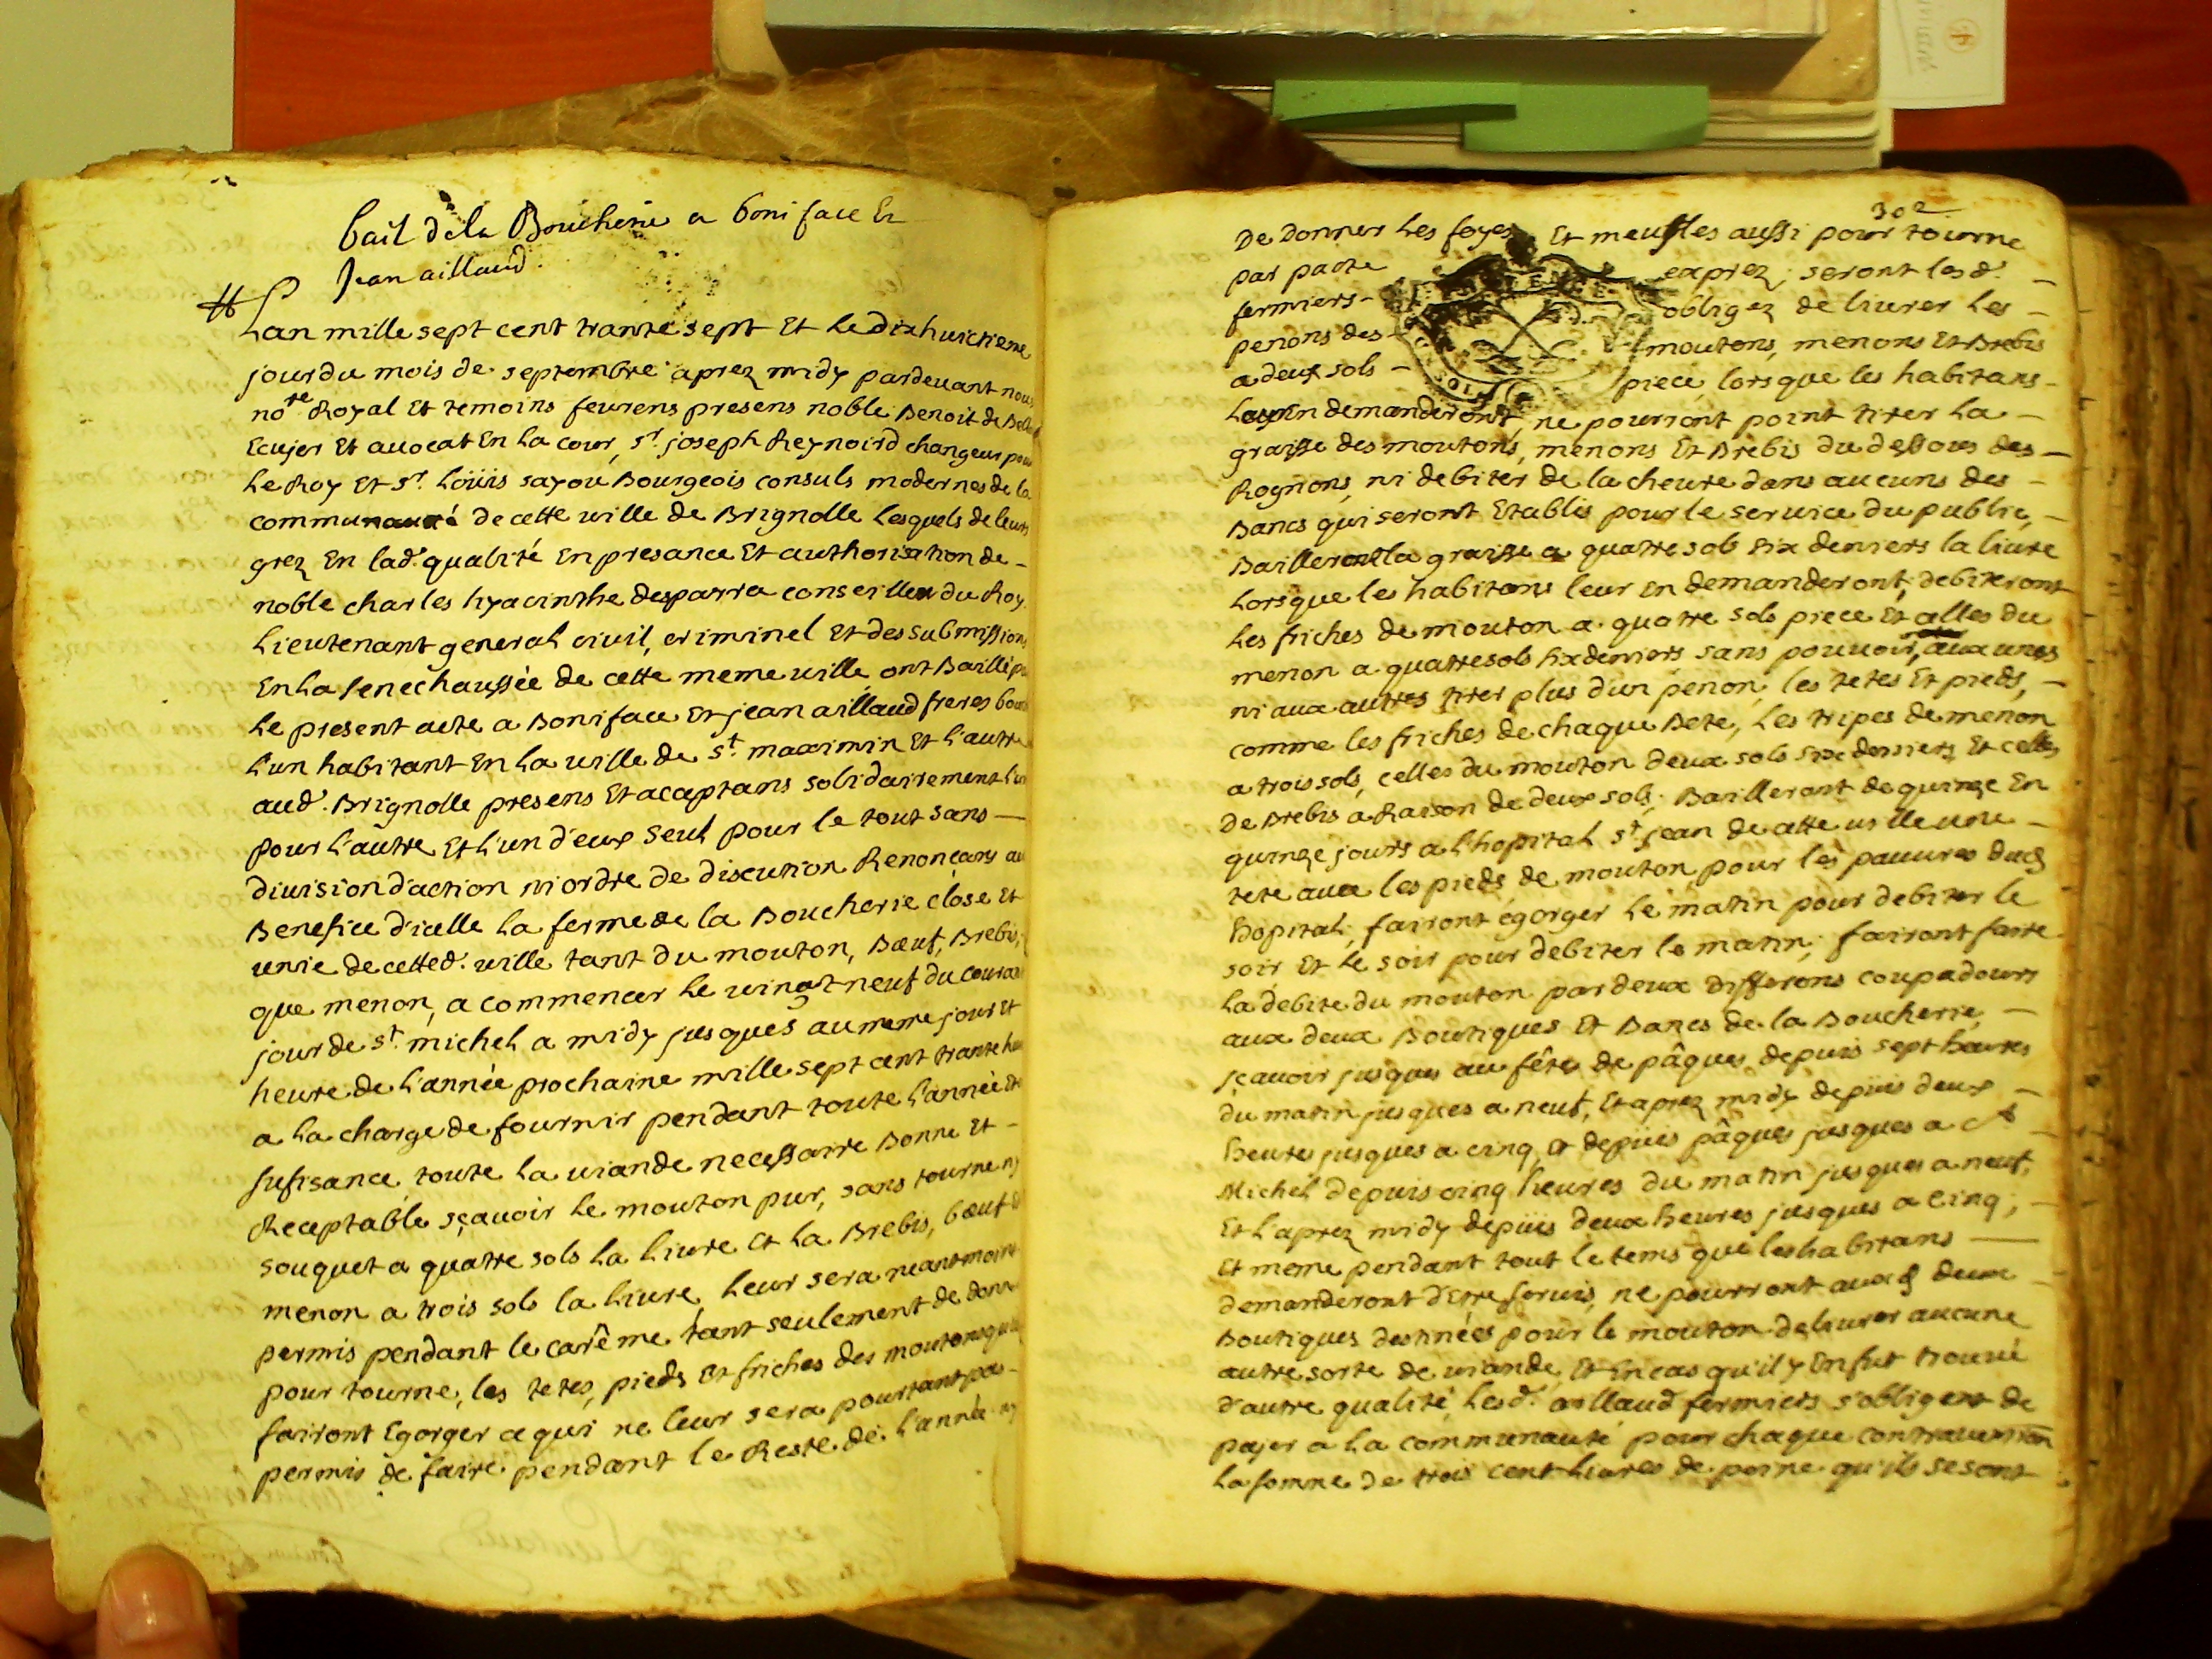 bail de la Boucherie a boniface Et
Jean aillaud.
Lan mille sept cent trante sept Et Le dixhuictieme
jour du mois de septembre aprez midy pardevant nous
notre Royal Et temoins feurens presens noble Benoit de
Ecuyer Et avocat En La cour, sr. joseph Reynoird changeur pour
Le Roy Et sr. Loüis sayou Bourgeois consuls modernes de la
communauté de cette ville de Brignolle Lesquels de leurs
grez En lad. qualité En presance Et authorisation de
noble charles hyacinthe desparra conseiller du Roy
Lieutenant general civil, criminel Et des submissions
En La senechaussée de cette meme ville ont Baillé par
Le present acte a Boniface Et jean aillaud freres
L'un habitant En La ville de st. maximin Et L'autre
aud. Brignolle presens Et acaptans solidairement L'un
pour L'autre Et L'un d'eux seul pour le tout sans
division d'action ni ordre de discution Renonçans au
Benefice d'icelle La ferme de la Boucherie close Et
unie de cetted. ville tant du mouton, Bœuf, Brebis,
que menon, a commencer Le vingt neuf du courant
jour de st. michel a midy jusques au meme jour Et
heure de L'année prochaine mille sept cent trante huit
a La charge de fournir pendant toute L'année Et
sufisance toute La viande necessaire Bonne Et
Receptable sçavoir Le mouton pur, sans tourne ny
souquet a quatre sols La Livre Et La Brebis, bœuf Et
menon a trois sols la Livre, Leur sera neantmoins
permis pendant le carême tant seulement de donner
pour tourne, les tetes, pieds Et friches des moutons qu'ils
fairont Egorger ce qui ne leur sera pourtant pas
permis de faire pendant le Reste de L'année ny
302
De Donner Les foyes Et meuffles aussi pour tourne
par pacte exprez; seront les d.
fermiers obligez de livrer Les
penons des moutons, menons Et Brebis
a deux sols piece, lorsque les habitans
Leur En demanderont, ne pourront point tirer La
graisse des moutons, menons Et Brebis du dessous des
Rognons, ni debiter de la cheure dans aucuns des
Bancs qui seront Etablis pour le service du public,
Bailleront la graisse a quatre sols six deniers la livre
Lorsque les habitans leur En demanderont; debiteront
Les friches de mouton a quatre sols piece Et celles du
menon a quatre sols six deniers sans pouvoir, aux unes
ni aux autres tirer plus d'un penon, les tetes Et pieds,
comme les friches de chaque Bete, Les tripes de menon
a trois sols, celles du mouton deux sols six deniers Et celles
De Brebis a Raison de deux sols; Bailleront de quinze En
quinze jours a L'hopital st. jean de cette ville une
tete avec les pieds de mouton pour les pauvres dud.
hopital, fairont égorger Le matin pour debiter le
soir Et Le soir pour debiter le matin; fairont faire
La debite du mouton par deux differens coupadours
aux deux Boutiques Et Bancs de la Boucherie,
sçavoir jusques au fêtes de pâques depuis sept heures
du matin jusques a neuf, Et aprez midy depüis deux
heures jusques a cinq, Et depüis pâques jusques a st
Michel depuis cinq heures du matin jusques a neuf,
Et L'aprez midy depüis deux heures jusques a cinq;
Et meme pendant tout le tems que les habitans
demanderont d'Etre servis, ne pourront auxd. deux
Boutiques destinées pour le mouton delivrer aucune
autre sorte de viande, Et En cas qu'il y En fut trouvé
d'autre qualité, Lesd. aillaud fermiers s'obligent de
payer a La communauté pour chaque contravention
La somme de trois cent Livres de peine qu'ils se sont